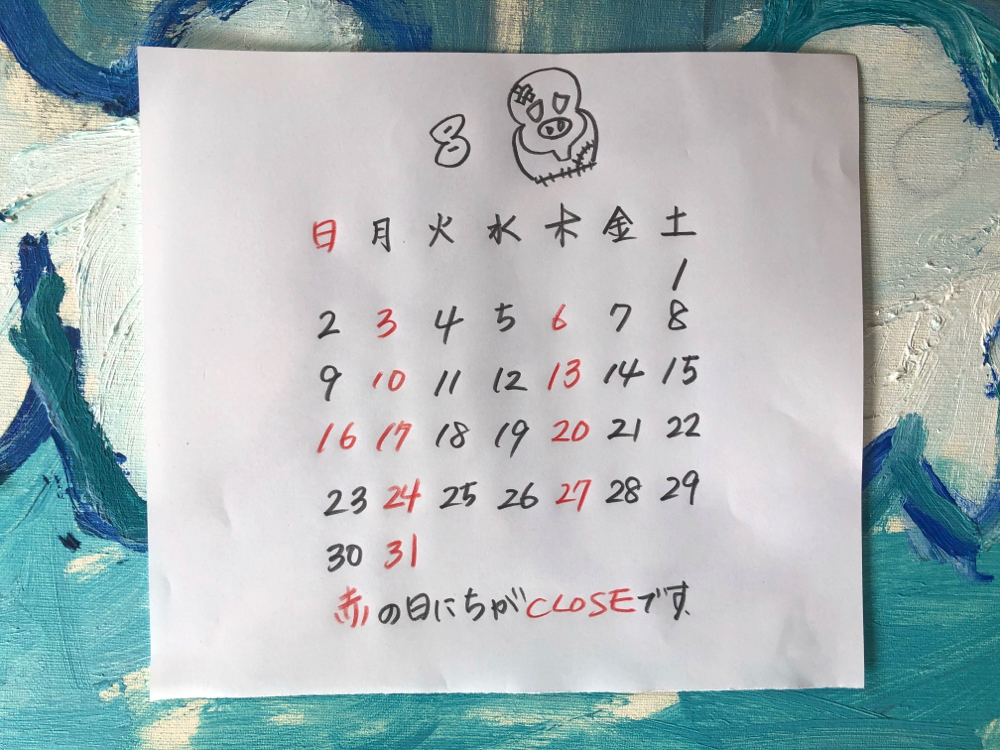 8
日 月 火 水 木 金 土
1
2 3 4 5 6 7 8
9 10 11 12 13 14 15
16 17 18 19 20 21 22
23 24 25 26 27 28 29
30 31
赤の日にちがCLOSEです